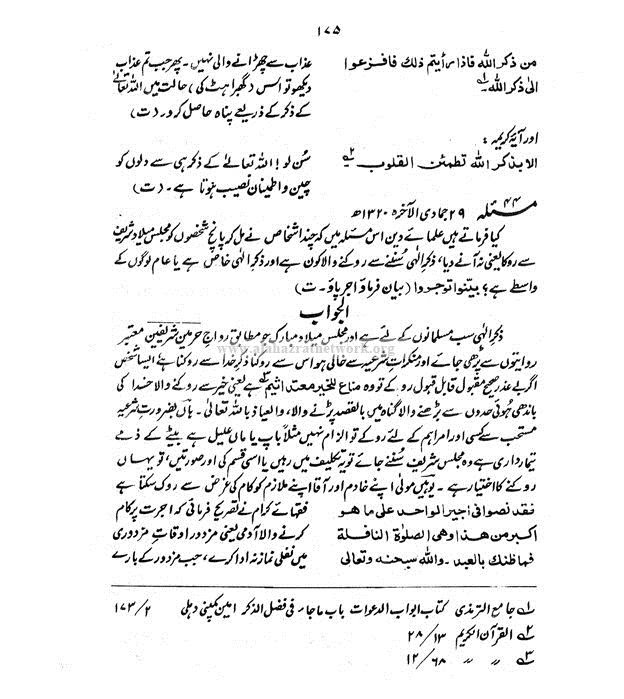 ۱۷۵
من ذکر الله فاذا رأیتم ذلك فافزعوا
الی ذکر الله۔
عذاب سے چھڑانے والی نہیں۔ پھر جب تم عذاب
دیکھو تو اس (گھبراہٹ کی) حالت میں اللہ تعالٰی
کے ذکر کے ذریعے پناہ حاصل کرو۔ (ت)
اور آیۂ کریمہ:
الا بذکر الله تطمئن القلوب ۲؎
سُن لو! اللہ تعالٰی کے ذکر ہی سے دلوں کو
چین و اطمینان نصیب ہوتا ہے۔ (ت)
مسئلہ ۴۴ ۲۹ جمادی الآخرہ ۱۳۲۰ھ
کیا فرماتے ہیں علمائے دین اس مسئلہ میں کہ چند اشخاص نے مل کر پانچ شخصوں کو مجلس میلاد شریف
سے روکا یعنی نہ آنے دیا، ذکر الٰہی سُننے سے روکنے والا کون ہے اور ذکر الٰہی خاص ہے یا عام لوگوں کے
واسطے ہے؟ بیّنوا توجروا (بیان فرماؤ اجر پاؤ۔ ت)
الجواب
ذکر الٰہی سب مسلمانوں کے لئے ہے اور مجلس میلاد مبارک جو مطابق رواج حرمین شریفین معتبر
روایتوں سے پڑھی جائے اور منکرات شرعیہ سے خالی ہو اس سے روکنا ذکر خدا سے روکنا ہے ایسا شخص
اگر بے عذر صحیح مقبول قابل قبول روکے تو وہ مناع للخیر معتد اثیم۳؎ ہے یعنی خیر سے روکنے والا خدا کی
باندھی ہوئی حدوں سے بڑھنے والا گناہ میں بالقصد پڑنے والا، والعیاذ باللہ تعالٰی۔ ہاں بضرورتِ شرعیہ
مستحب سے کسی اور امر اہم کے لئے روکے تو الزام نہیں مثلاً باپ یا ماں علیل ہے بیٹے کے ذمے
تیمارداری ہے وہ مجلس شریف سُننے جائے تو یہ تکلیف میں رہیں یا اسی قسم کی اور صورتیں، تو یہاں
روکنے کا اختیار ہے۔ یوہیں مولٰی اپنے خادم اور آقا اپنے ملازم کو کام کی غرض سے روک سکتا ہے
فقد نصوا فی اجیر الواحد علی ما هو
اکبر من هذا وهی الصلوٰة النافلة
فما ظنك بالعبد۔ والله سبحنه وتعالٰی
فقہائے کرام نے تصریح فرمائی کہ اجرت پر کام
کرنے والا آدمی یعنی مزدور اوقاتِ مزدوری
میں نفلی نماز نہ ادا کرے، جب مزدور کے بارے
۱؎ جامع الترمذی کتاب ابواب الدعوات باب ماجاء فی فضل الذکر امین کمپنی دہلی ۲/۱۷۳
۲؎ القرآن الکریم ۱۳/۲۸
۳؎ ״ ״ ۶۸/۱۲